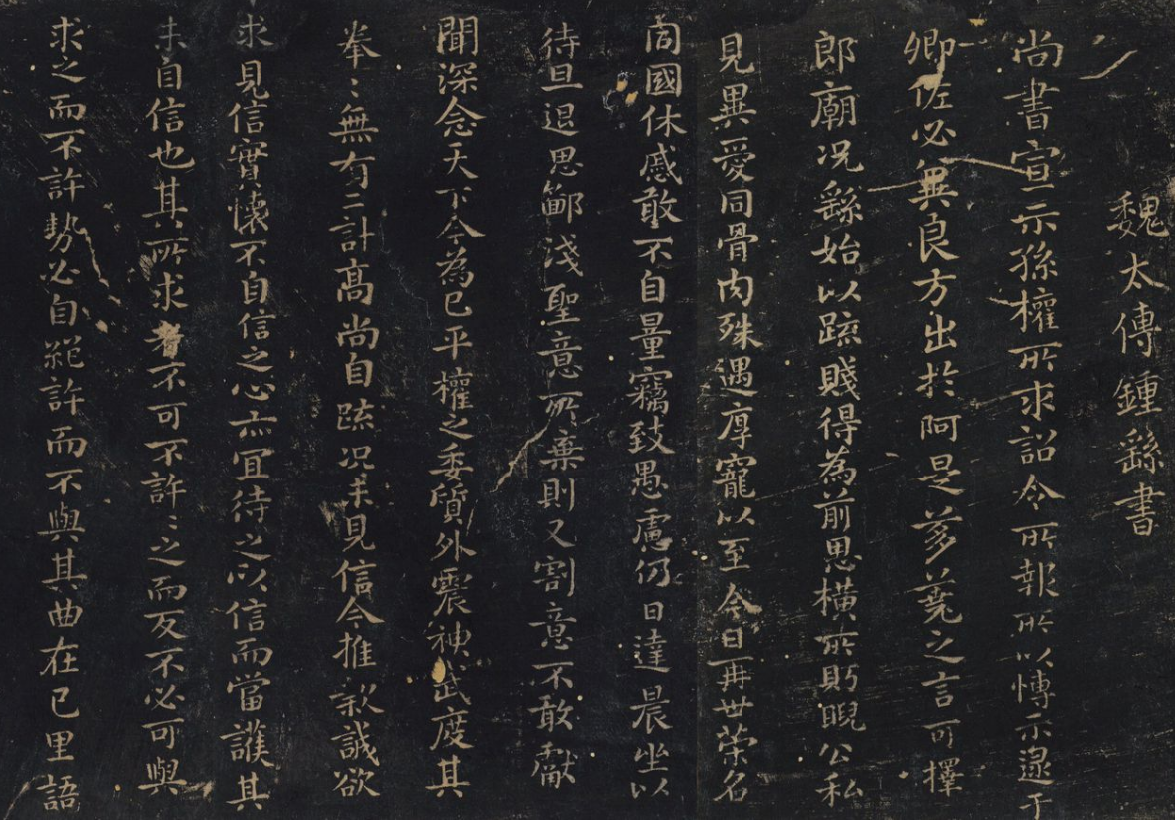 魏太傅鍾繇書
尚書宣示孫權所求詔令所報所以博示逮于
卿佐必冀良方出於阿是芻蕘之言可擇
郎廟況繇始以疏賤得為前恩橫所眄睨公私
見異愛同骨肉殊遇厚寵以至今日再世榮名
同國休慼敢不自量竊致愚慮仍日達晨坐以
待旦退思鄙淺聖意所棄則又割意不敢獻
聞深念天下今為已平權之委質外震神武度其
拳〻無有二計高尚自疏況未見信今推款誠欲
求見信實懷不自信之心亦宜待之以信而當護其
未自信也其所求者不可不許〻之而反不必可與
求之而不許勢必自絕許而不與其曲在己里語